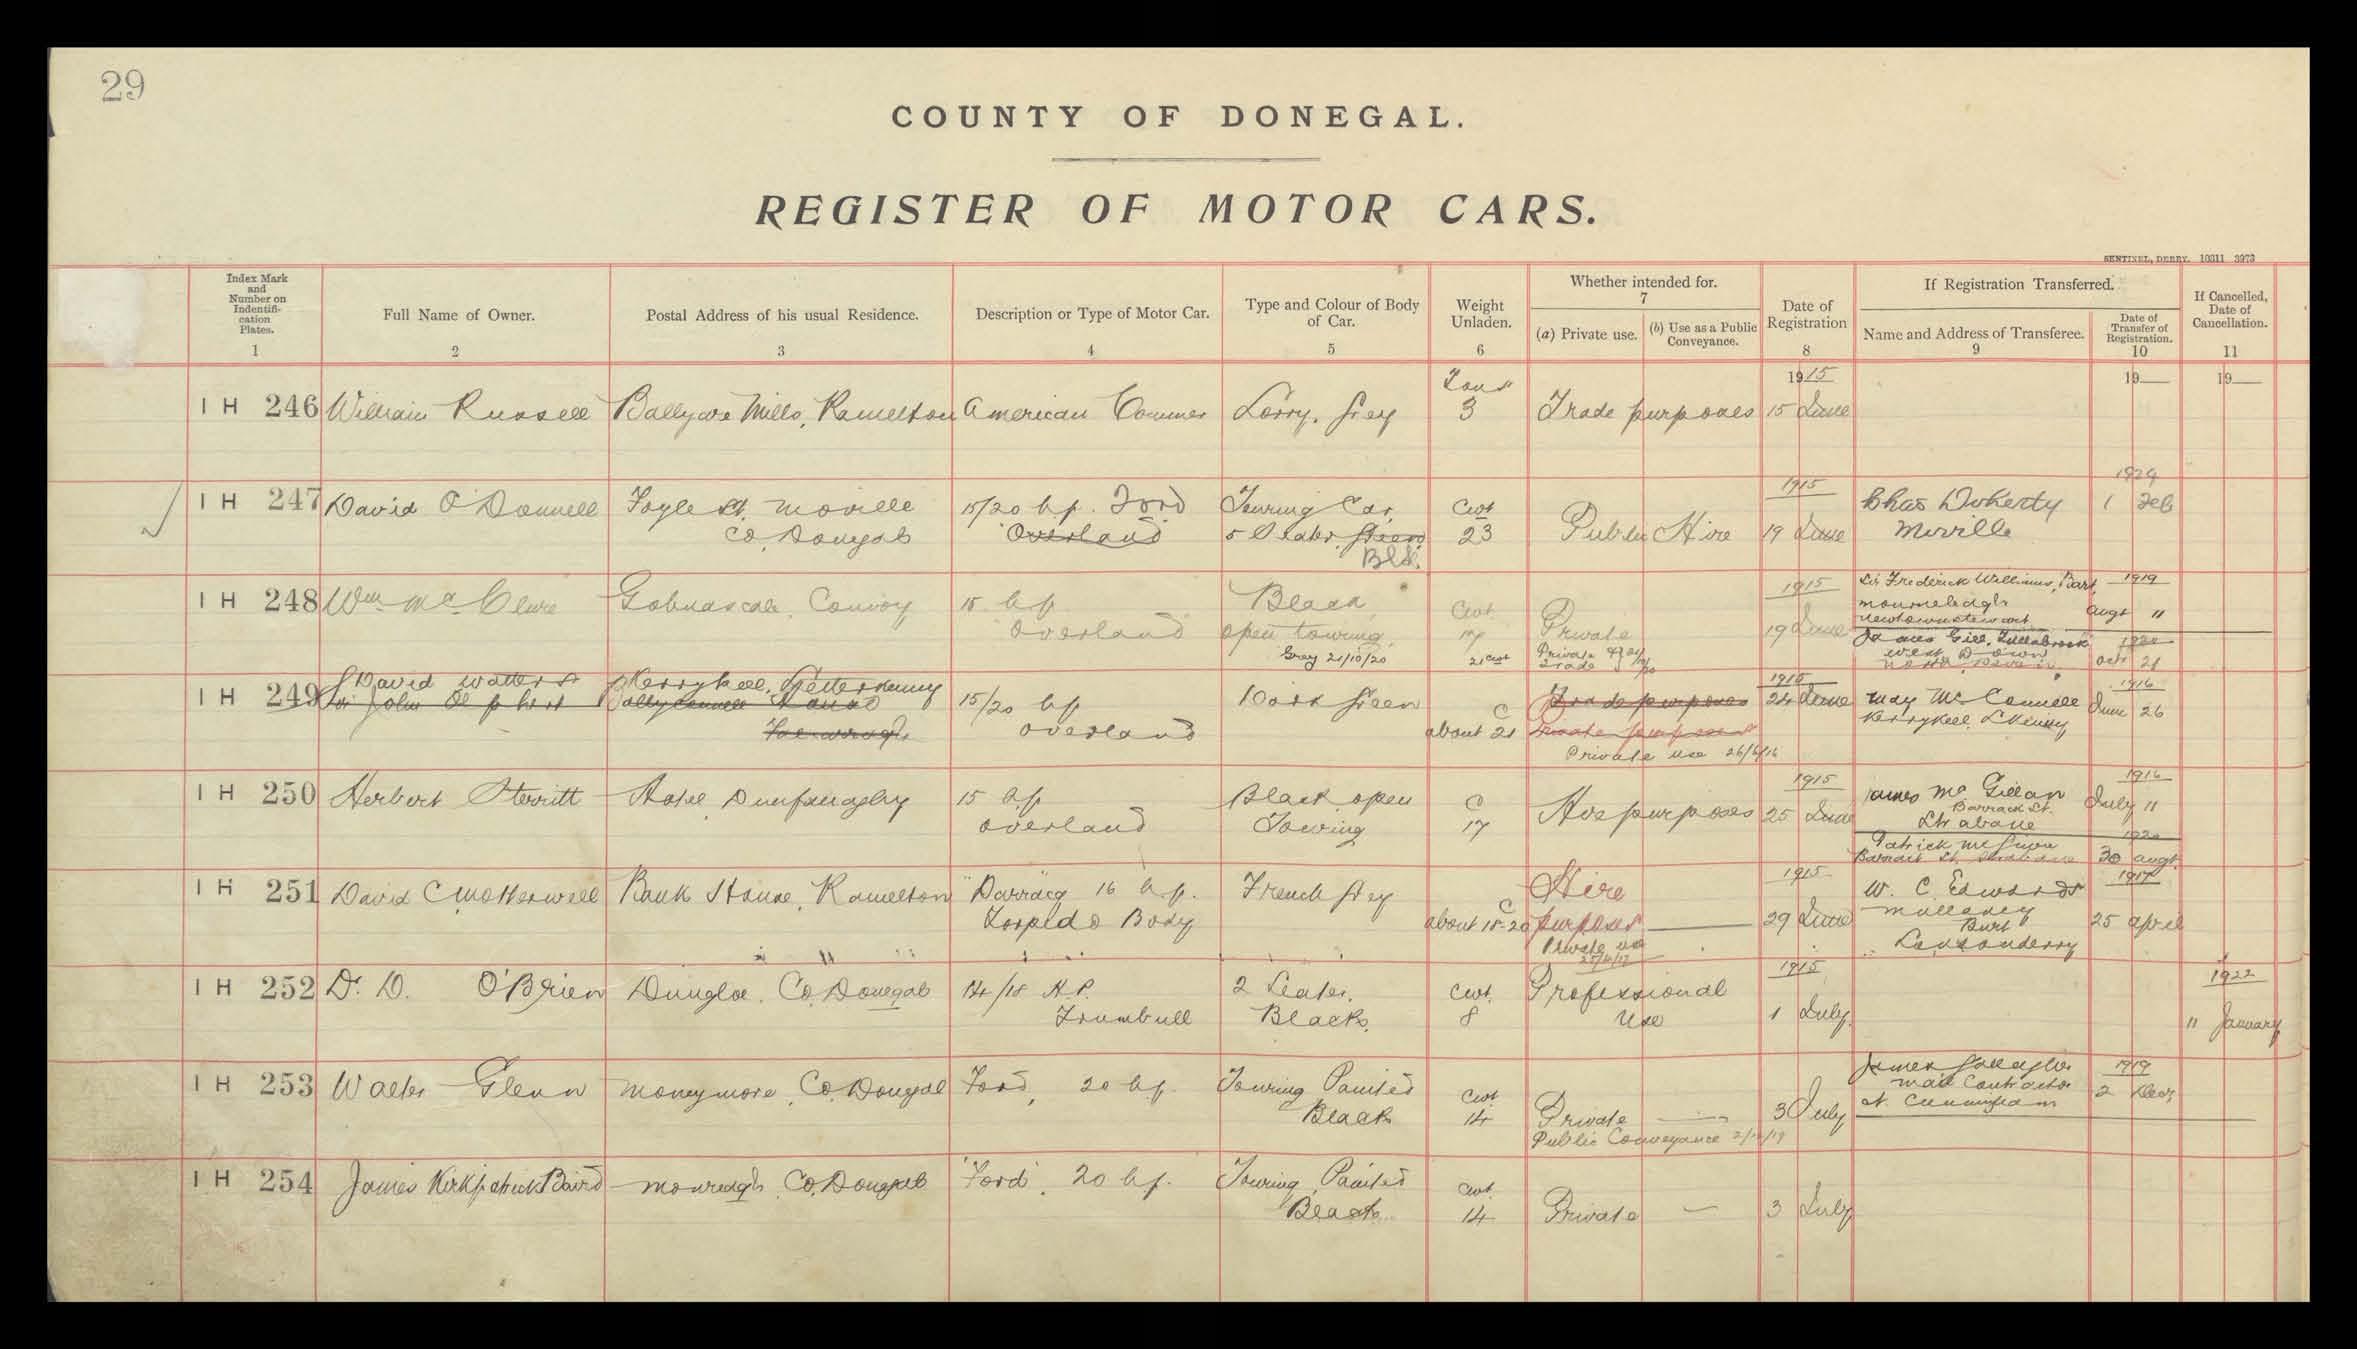 29
COUNTY OF DONEGAL.
REGISTER OF MOTOR CARS.
SENTINEL, DERRY. 10311 3973
Index Mark
and
Number on
Indentifi-
cation
Plates.
1
Full Name of Owner.
2
Postal Address of his usual Residence.
3
Description or Type of Motor Car.
4
Type and Colour of Body
of Car.
5
Weight
Unladen.
6
Whether intended for.
7
(a) Private use.
(b) Use as a Public
Conveyance.
Date of
Registration
8
If Registration Transferred.
Name and Address of Transferee.
9
Date of
Transfer of
Registration.
10
If Cancelled,
Date of
Cancellation.
11
Tons 1915 19 19
I H 246 William Russell Ballyare Mills, Ramelton American Commer Lorry, Grey 3 Trade purposes 15 June
1915 1924
I H 247 David O'Donnell Foyle St. Moville 15/20 h.p. Ford Touring Car, Cwt Chas Doherty 1 Feb
Co. Donegal Overland 5 Seater Green 23 Public Hire 19 June Moville
Blk.
I H 248 Wm McClure Convoy 15 h.p. Black 1915 Sir Frederick Williams, Bart, 1919
Overland open touring, Cwt. 17 Private 19 June Newtownstewart Augt 11
Grey 21/10/20 21 cwt Private & Trade James Gill, 1920
West Down
North Devon Oct 21
I H 249 David Watters Kerrykeel, Letterkenny 1915 1916
Sir John Olphert Ballyconnell House 15/20 h.p. Dark Green Trade purposes 24 June May McConnell June 26
Falcarragh Overland C about 21 Private purposes Kerrykeel L'Kenny
Private use 26/6/16
1915 1916
I H 250 Herbert Sterritt Hotel Dunfanaghy 15 h.p. Black open C James McGillan July 11
Overland Touring 17 Hire purposes 25 June Barrack St.
Strabane 1920
Patrick
Barrack St. Strabane 30 Augt
I H 251 David C Motherwell Bank House, Ramelton "Darracq 16 h.p. French Grey Hire 1915 W. C. Edwards 1917
Torpedo Body C about 18-20 purposes 29 June Burt 25 April
Private use Londonderry
25/4/17
1915 1922
I H 252 Dr. D. O'Brien Dungloe, Co. Donegal 14/18 H.P. 2 Seater, Cwt. Professional
Trumbull Black. 8 Use 1 July 11 January
I H 253 Walter Glenn Moneymore, Co. Donegal Ford, 20 h.p. Touring Painted Cwt. James Gallagher 1919
Black 14 Private 3 July Mail Contractor 2 Dec.
Public Conveyance 2/12/19
I H 254 James Kirkpatrick Baird Monreagh Co. Donegal 'Ford', 20 h.p. Touring, Painted Cwt.
Black 14 Private 3 July